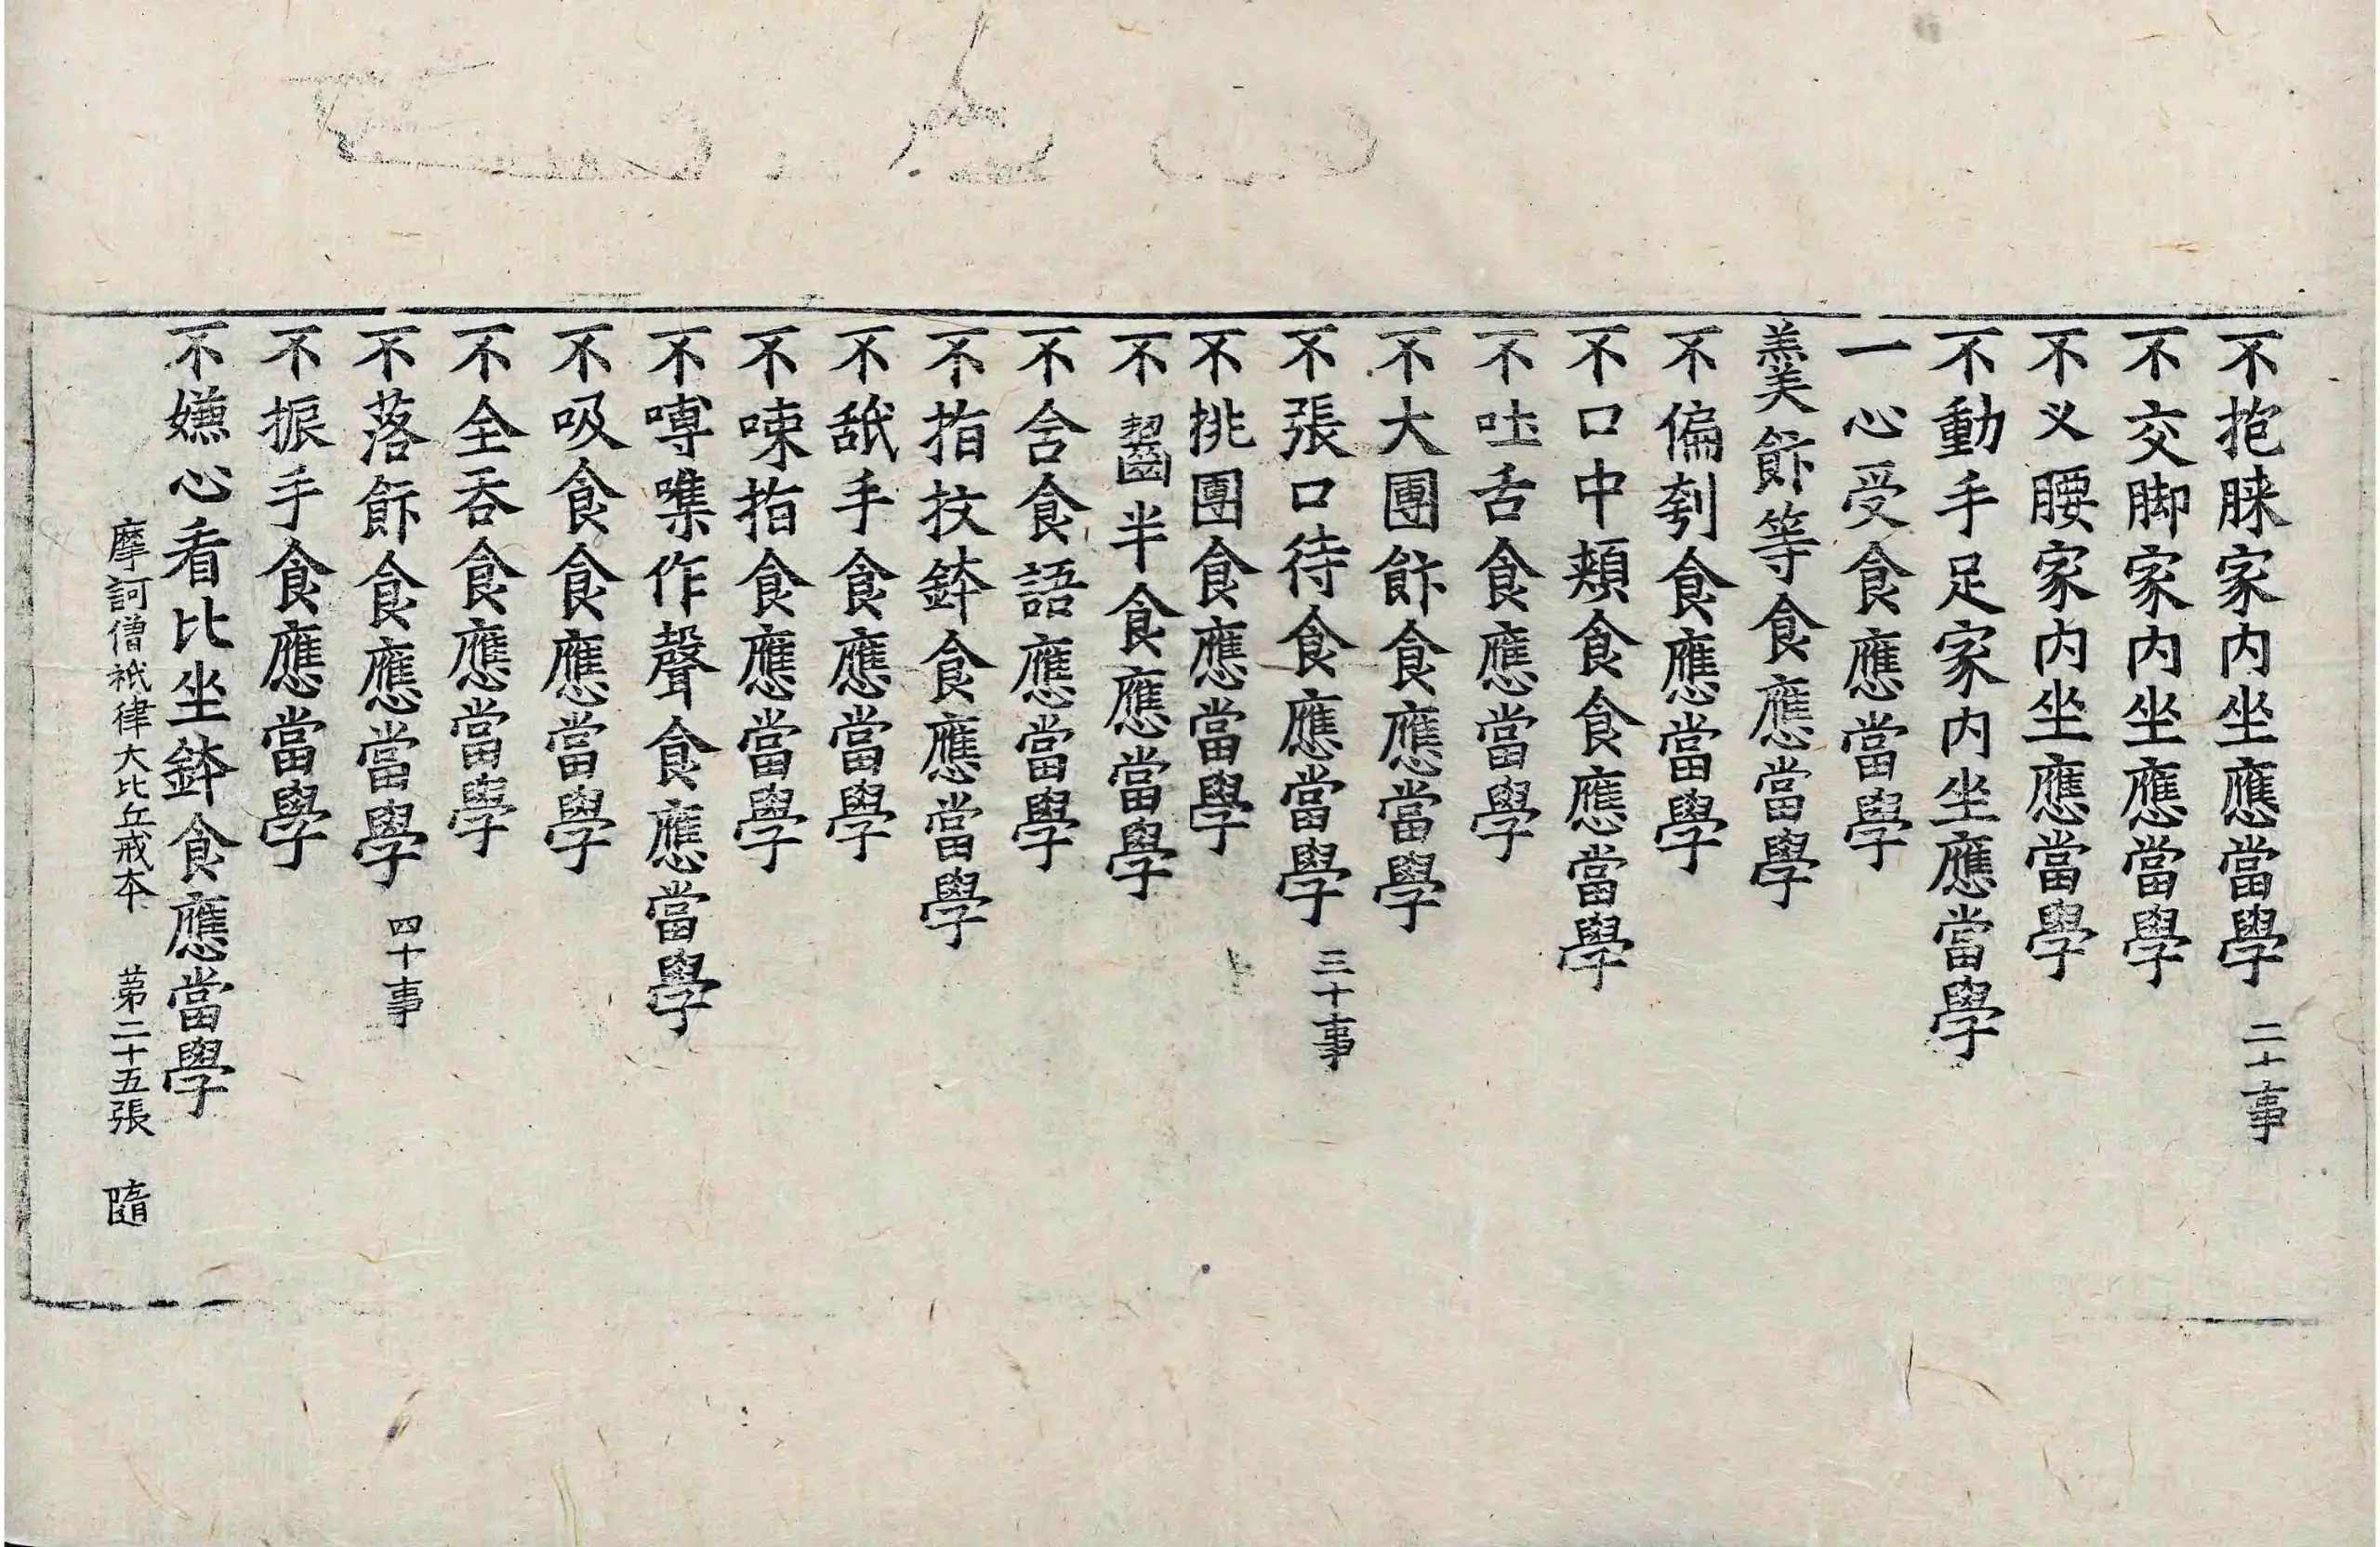 不抱䐆家内坐應當學 二十事
不交脚家内坐應當學
不义腰家内坐應當學
不動手足家内坐應當學
一心受食應當學
羹飰等食應當學
不偏刳食應當學
不口中頰食食應當學
不吐舌食應當學
不大團飰食應當學
不張口待食應當學 三十事
不挑團食應當學
不齧半食應當學
不含食語應當學
不指抆鉢食應當學
不舐手食應當學
不㖨指食應當學
不嚩噍作聲食應當學
不吸食食應當學
不全吞食應當學
不落飰食應當學 四十事
不振手食應當學
不嫌心看比坐鉢食應當學
摩訶僧祇律大比丘戒本 苐二十五張 隨